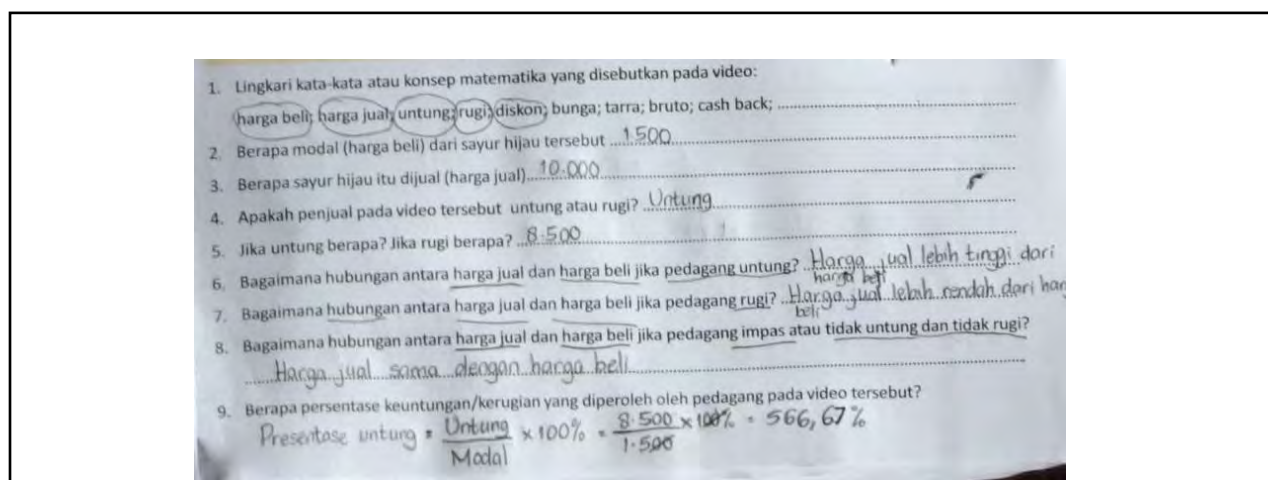 1. Lingkari kata-kata atau konsep matematika yang disebutkan pada video:
harga beli; harga jual; untung; rugi; diskon; bunga; tarra; bruto; cash back;
2. Berapa modal (harga beli) dari sayur hijau tersebut 1.500
3. Berapa sayur hijau itu dijual (harga jual) 10.000
4. Apakah penjual pada video tersebut untung atau rugi? Untung
5. Jika untung berapa? Jika rugi berapa? 8.500
6. Bagaimana hubungan antara harga jual dan harga beli jika pedagang untung? Harga jual lebih tinggi dari
harga beli
7. Bagaimana hubungan antara harga jual dan harga beli jika pedagang rugi? Harga jual lebih rendah dari har
beli
8. Bagaimana hubungan antara harga jual dan harga beli jika pedagang impas atau tidak untung dan tidak rugi?
Harga jual sama dengan harga beli
9. Berapa persentase keuntungan/kerugian yang diperoleh oleh pedagang pada video tersebut?
Presentase untung = Untung / Modal × 100% = 8.500 / 1.500 × 100% = 566,67%